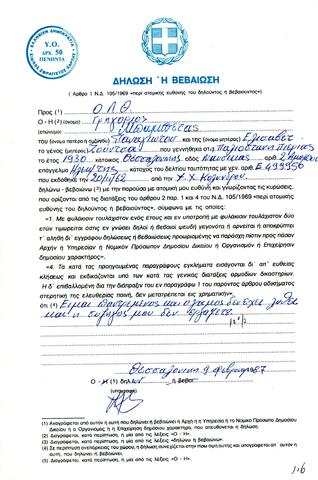 ΕΛΛΗΝΙΚΗ ΔΗΜΟΚΡΑΤΙΑ
Υ.Ο.
ΑΡΧ. 50
ΠΕΝΗΝΤΑ
ΔΗΛΩΣΗ Ή ΒΕΒΑΙΩΣΗ
(Άρθρο 1 Ν.Δ. 105/1969 «περί ατομικής ευθύνης του δηλούντος ή βεβαιούντος»)
Προς (1) Ο.Λ.Θ
Ο - Η (2) (όνομα) Γρηγόριος
(επώνυμο)
του (όνομα πατέρα ή συζύγου) Παναγιώτου και της (όνομα μητέρας) Ελισάβετ
το γένος (μητέρας) που γεννήθηκε στη
το έτος 1930 κάτοικος Θεσσαλονίκης οδός αριθ.
επάγγελμα κάτοχος του δελτίου ταυτότητας με γεν. αριθ. Ε 499956
που εκδόθηκε την 20/1/62 από
δηλώνω - βεβαιώνω (3) με την παρούσα με ατομική μου ευθύνη και γνωρίζοντας τις κυρώσεις,
που ορίζονται από τις διατάξεις του άρθρου 2 παρ. 1 και 4 του Ν.Δ. 105/1969 «περί ατομικής
ευθύνης του δηλούντος ή βεβαιούντος», σύμφωνα με τις οποίες:
«1. Με φυλάκισιν τουλάχιστον ενός έτους και εν υποτροπή με φυλάκισιν τουλάχιστον δύο
ετών τιμωρείται όστις εν γνώσει δηλοί ή βεβαιοί ψευδή γεγονότα ή αρνείται ή αποκρύπτει
τ' αληθή δι' εγγράφου δηλώσεως ή βεβαιώσεως προωρισμένης να παράσχη πίστιν προς πάσαν
Αρχήν ή Υπηρεσίαν ή Νομικόν Πρόσωπον Δημοσίου Δικαίου ή Οργανισμόν ή Επιχείρησιν
δημοσίου χαρακτήρος».
«4. Τα κατά τας προηγουμένας παραγράφους εγκλήματα εισάγονται δι' απ' ευθείας
κλήσεως και εκδικάζονται υπό των κατά τας γενικάς διατάξεις αρμοδίων δικαστηρίων.
Η δ' επιβαλλομένη δια την διάπραξιν του εν παραγράφω 1 του παρόντος άρθρου αδικήματος
στερητική της ελευθερίας ποινή, δεν μετατρέπεται εις χρηματικήν».
(4) Είμαι παντρεμένος και ο γάμος δεν έχει λυθεί
και η σύζυγός μου δεν εργάζεται
Θεσσαλονίκη 9
Ο - Η (5) δηλών - ή βεβαι
(υπογραφή)
(1) Αναγράφεται από αυτόν ή αυτή που δηλώνει ή βεβαιώνει η Αρχή ή η Υπηρεσία ή το Νομικό Πρόσωπο Δημοσίου
Δικαίου ή ο Οργανισμός ή η Επιχείρηση δημοσίου χαρακτήρα, που απευθύνεται η δήλωση.
(2) Διαγράφεται, κατά περίπτωση, η μία από τις λέξεις «Ο - Η».
(3) Διαγράφεται, κατά περίπτωση, η μία από τις λέξεις «δηλώνω ή βεβαιώνω».
(5) Διαγράφεται, κατά περίπτωση, η μία από τις λέξεις «Ο - Η».